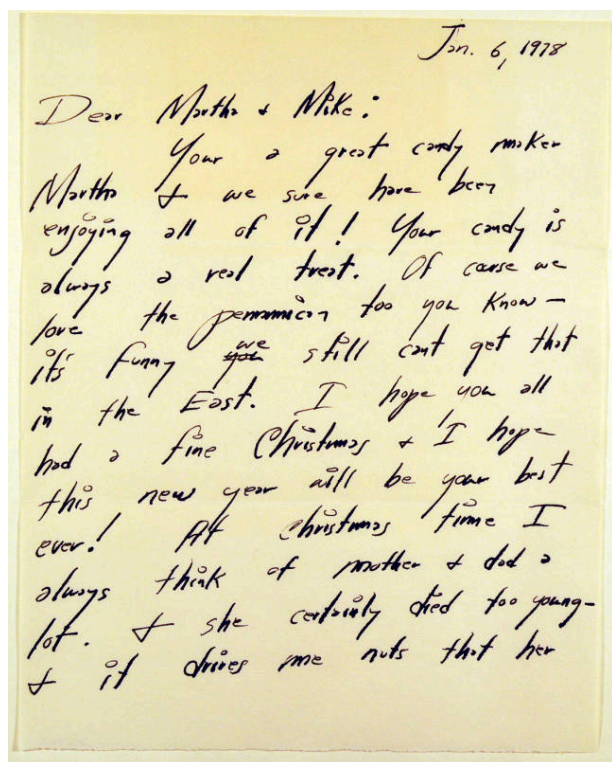 Jan. 6, 1978
Dear Martha & Mike:
Your a great candy maker
Martha & we sure have been
enjoying all of it! Your candy is
always a real treat. Of course we
love the pemmican too you know—
its funny we still cant get that
in the East. I hope you all
had a fine Christmas & I hope
this new year will be your best
ever! At Christmas time I
always think of mother & dad a
lot. & she certainly died too young-
& it drives me nuts that her